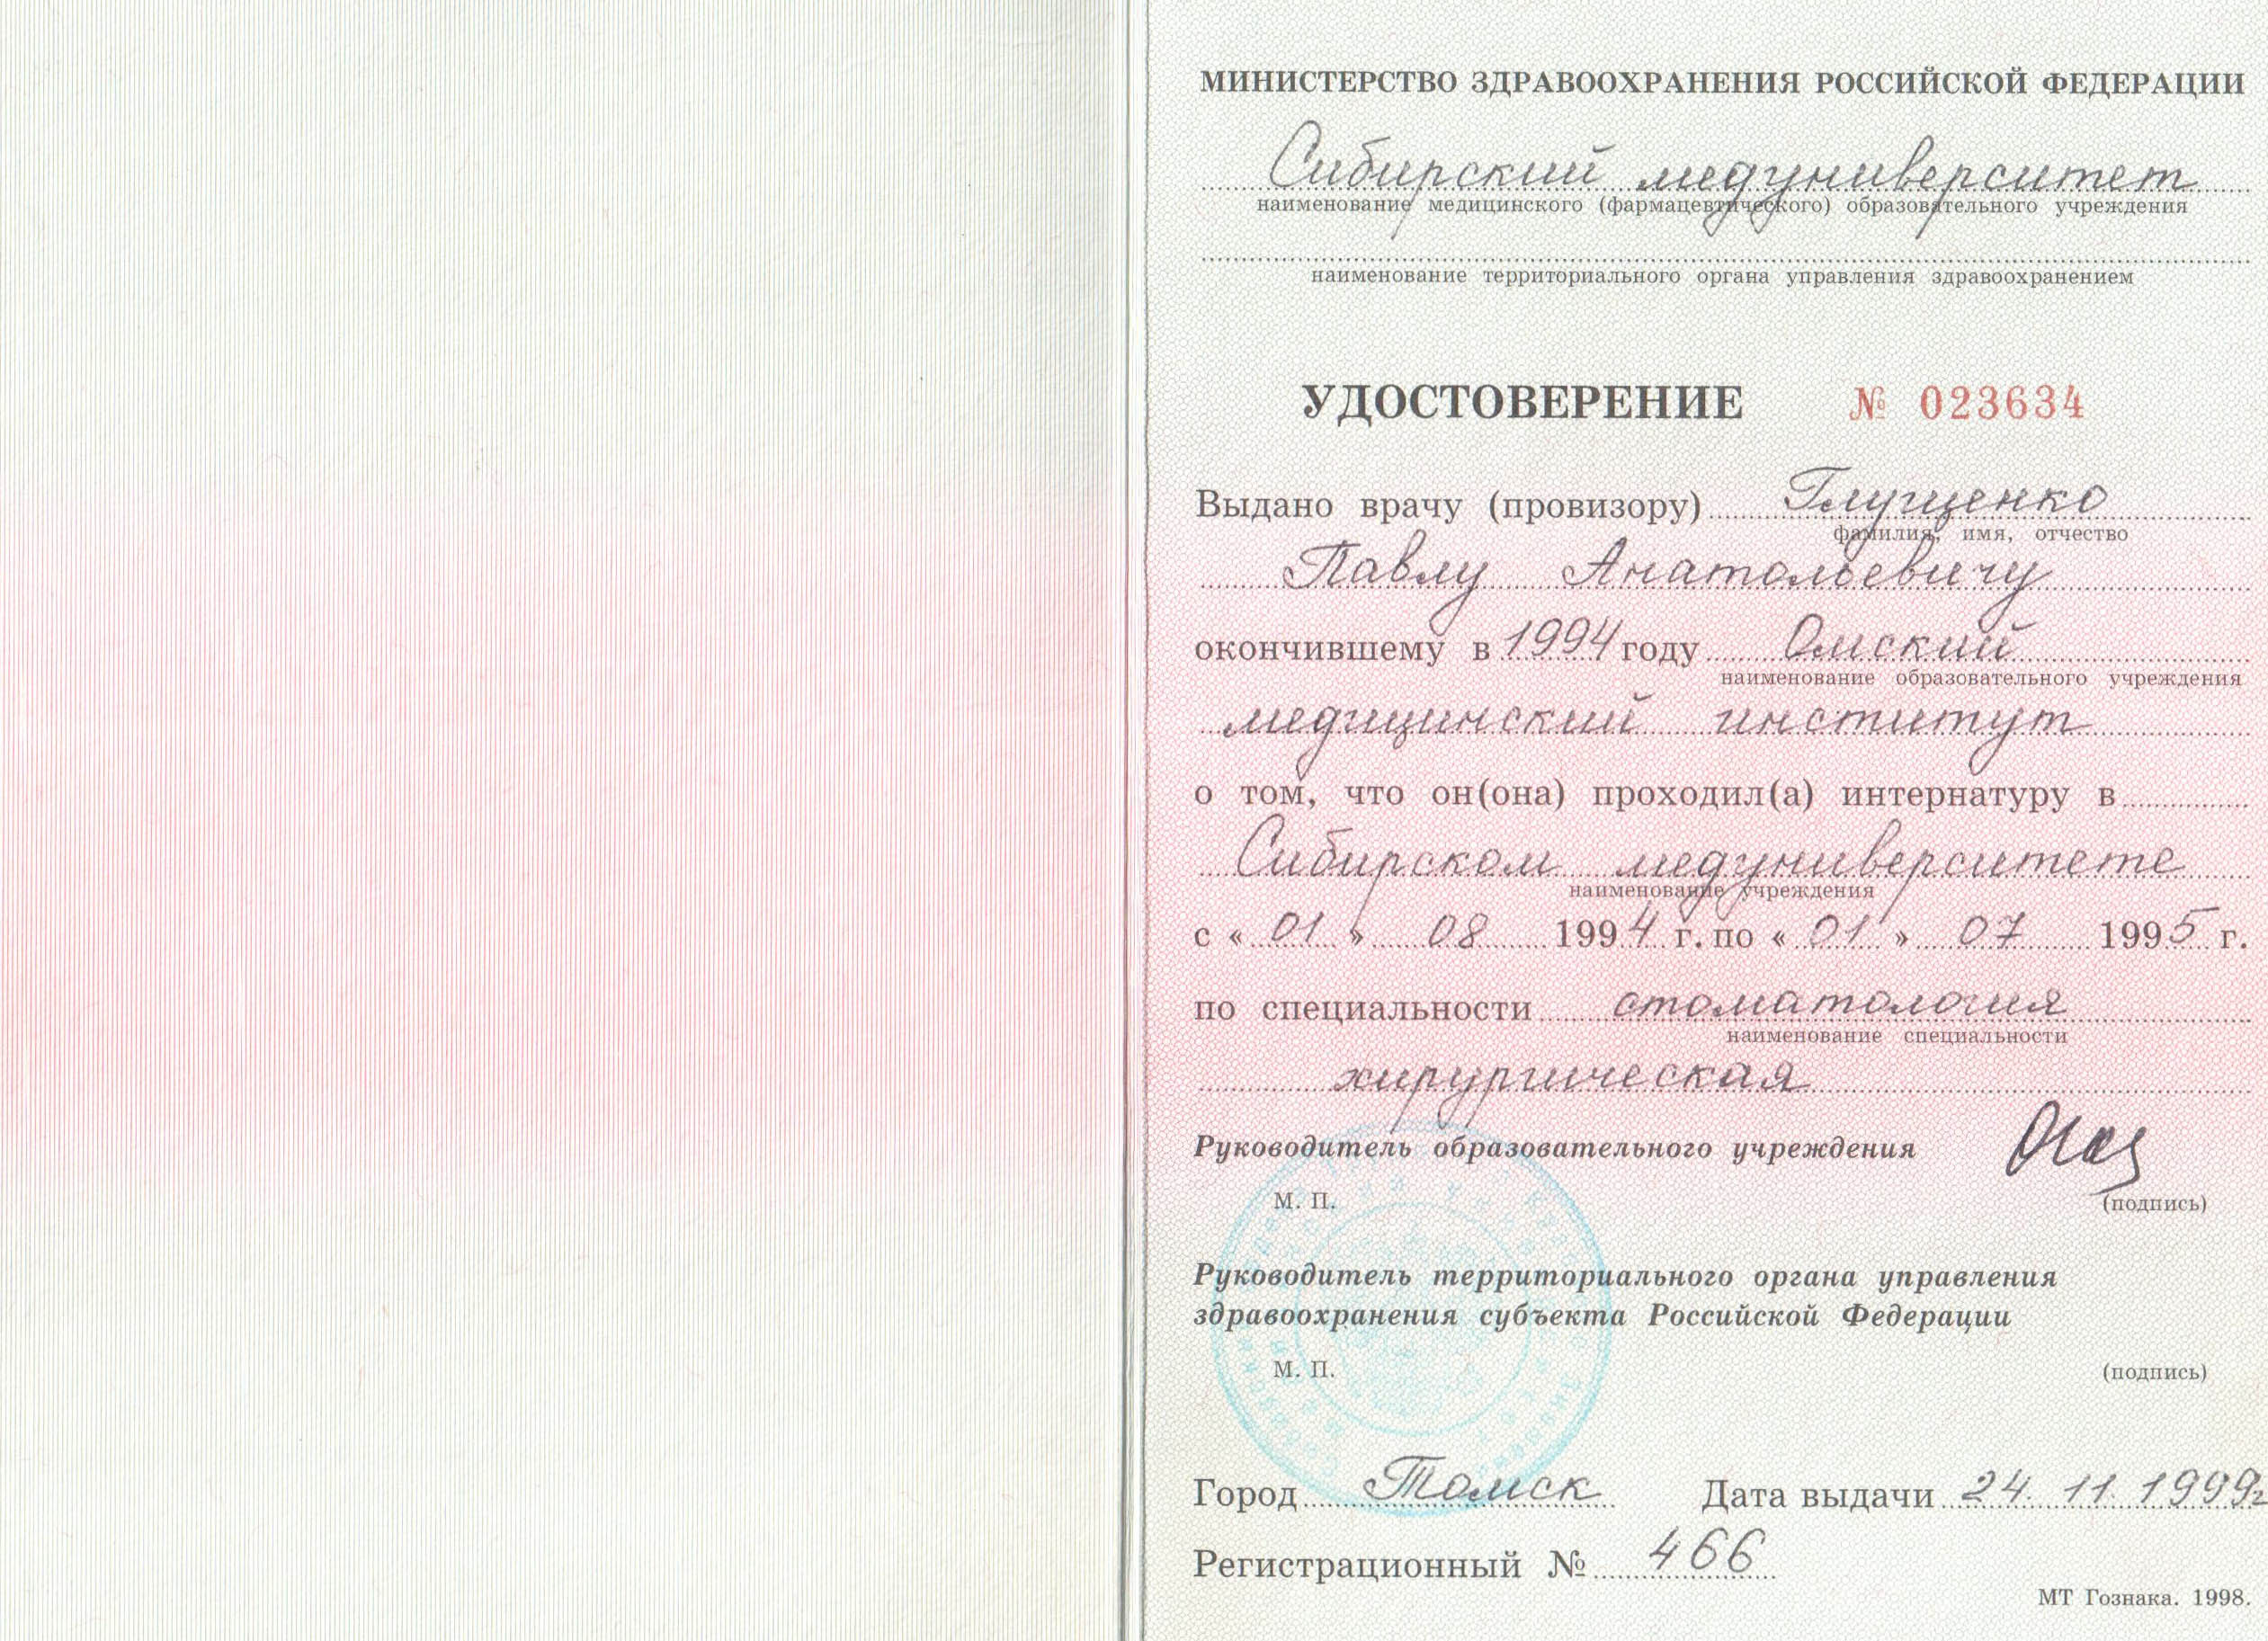 МИНИСТЕРСТВО ЗДРАВООХРАНЕНИЯ РОССИЙСКОЙ ФЕДЕРАЦИИ
Сибирский медуниверситет
наименование медицинского (фармацевтического) образовательного учреждения
наименование территориального органа управления здравоохранением
УДОСТОВЕРЕНИЕ № 023634
Выдано врачу (провизору) Глущенко
фамилия, имя, отчество
Павлу Анатольевичу
окончившему в 1994 году Омский
наименование образовательного учреждения
медицинский институт
о том, что он(она) проходил(а) интернатуру в
Сибирском медуниверситете
наименование учреждения
с « 01 » 08 1994 г. по « 01 » 07 1995 г.
по специальности стоматология
наименование специальности
хирургическая
Руководитель образовательного учреждения
М. П. (подпись)
Руководитель территориального органа управления
здравоохранения субъекта Российской Федерации
М. П. (подпись)
Город Томск Дата выдачи 24. 11. 1999г
Регистрационный № 466
МТ Гознака. 1998.